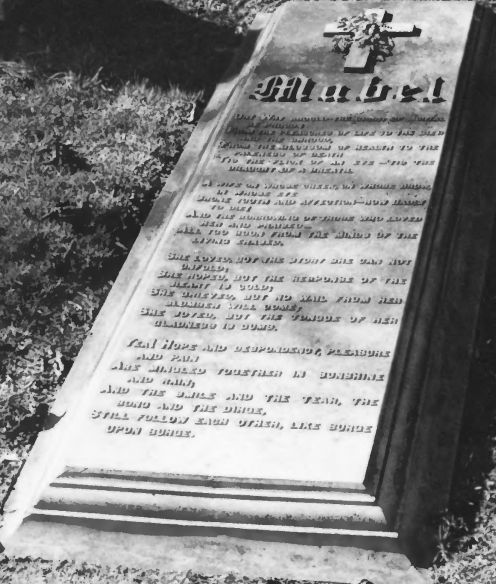 Mabel
OH! WHY SHOULD THE SPIRIT OF MORTAL
BE PROUD?
FROM THE PLEASURES OF LIFE TO THE BIER
AND THE SHROUD,
FROM THE BLOSSOM OF HEALTH TO THE
PALENESS OF DEATH
'TIS THE OF AN EYE —'TIS THE
DRAUGHT OF A BREATH.
A WIFE ON WHOSE CHEEK, ON WHOSE BROW,
IN WHOSE EYE
SHONE YOUTH AND AFFECTION—
TO DIE!
AND THE OF THOSE WHO LOVED
HER AND PRAISED—
ALL TOO SOON FROM THE MINDS OF THE
LIVING ERASED.
SHE LOVED, BUT THE STORY SHE CAN NOT
UNFOLD;
SHE HOPED, BUT THE RESPONSE OF THE
HEART IS COLD;
SHE GRIEVED, BUT NO WAIL FROM HER
SLUMBER WILL COME;
SHE JOYED, BUT THE TONGUE OF HER
GLADNESS IS DUMB.
YEA! HOPE AND DESPONDENCY, PLEASURE
AND PAIN
ARE MINGLED TOGETHER IN SUNSHINE
AND RAIN;
AND THE SMILE AND THE TEAR, THE
SONG AND THE DIRGE,
STILL FOLLOW EACH OTHER, LIKE SURGE
UPON SURGE.